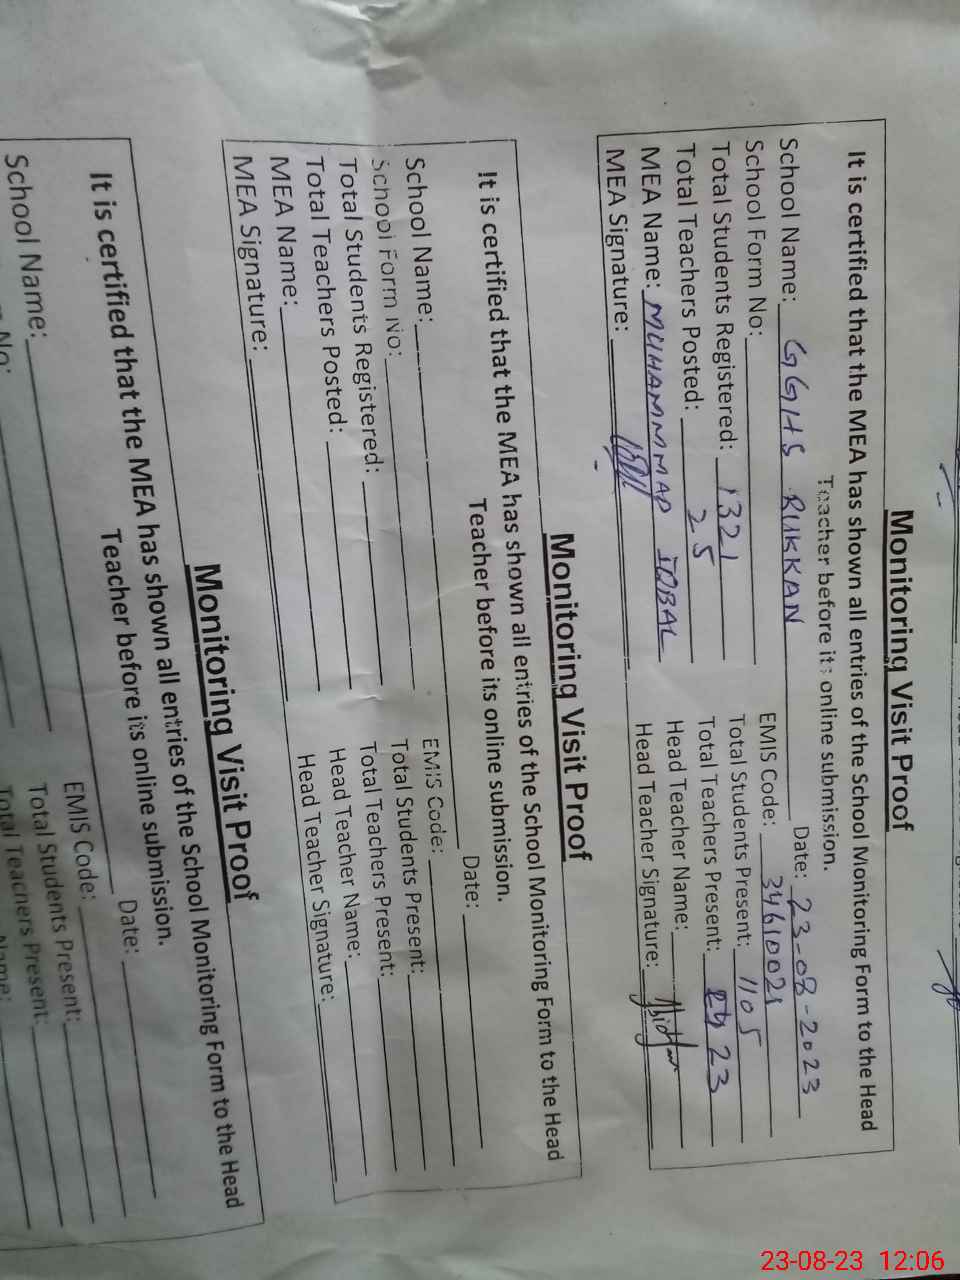 Monitoring Visit Proof
It is certified that the MEA has shown all entries of the School Monitoring Form to the Head
Teacher before its online submission.
School Name: GGHS RUKKAN Date: 23-08-2023
School Form No: EMIS Code: 34610021
Total Students Registered: 1321 Total Students Present: 1105
Total Teachers Posted: 25 Total Teachers Present: 23
MEA Name: MUHAMMAD IQBAL Head Teacher Name:
MEA Signature: Head Teacher Signature:
Monitoring Visit Proof
It is certified that the MEA has shown all entries of the School Monitoring Form to the Head
Teacher before its online submission.
School Name: Date:
School Form No: EMIS Code:
Total Students Registered: Total Students Present:
Total Teachers Posted: Total Teachers Present:
MEA Name: Head Teacher Name:
MEA Signature: Head Teacher Signature:
Monitoring Visit Proof
It is certified that the MEA has shown all entries of the School Monitoring Form to the Head
Teacher before its online submission.
School Name: Date:
No: EMIS Code:
Total Students Present:
Total Teachers Present:
Name:
23-08-23 12:06